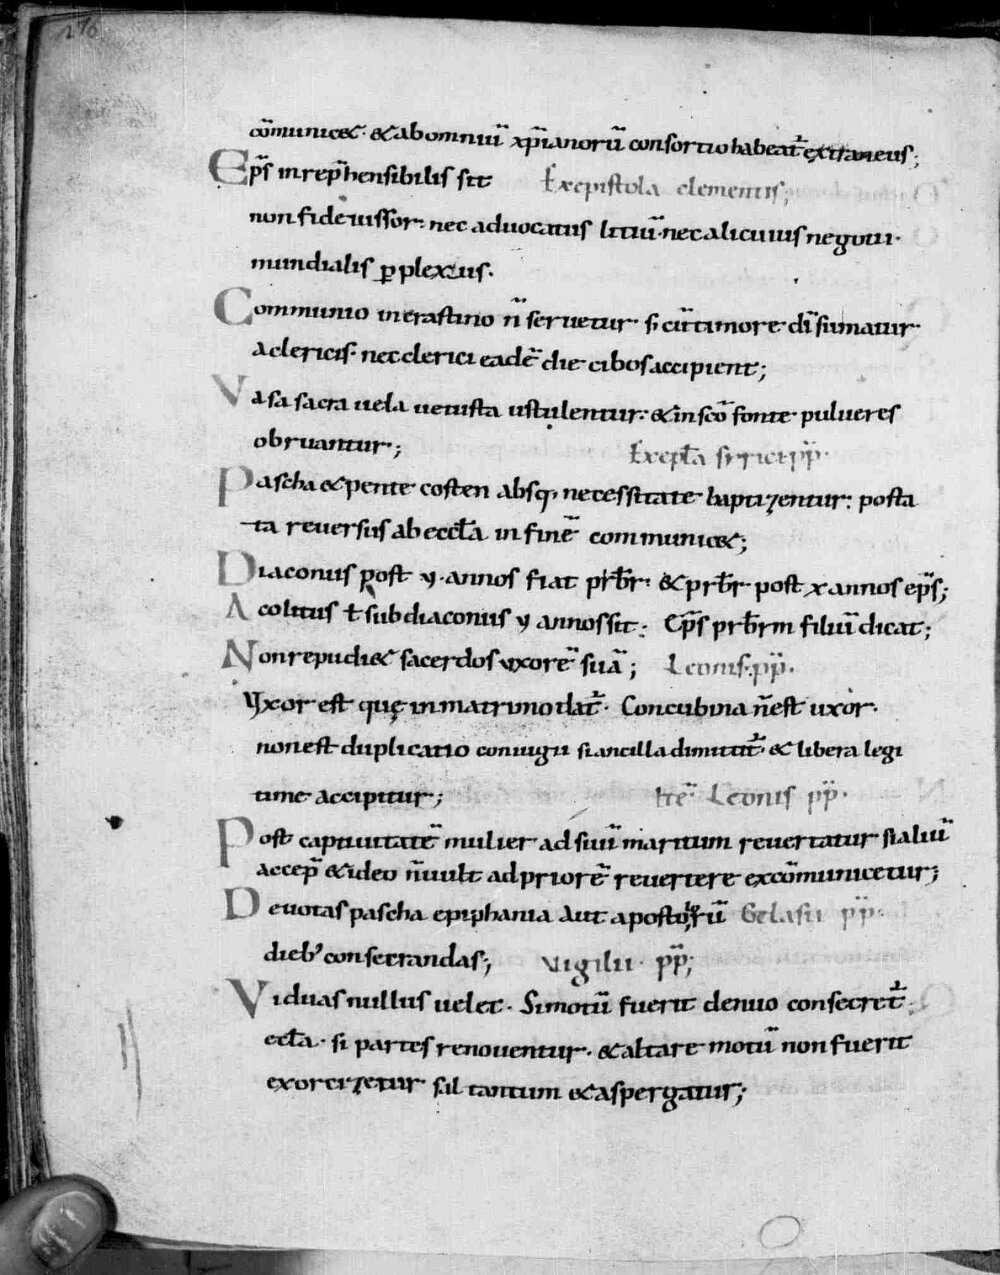 270
cōmunic& · & ab omniū xp̄ianorū consortio habeat̄ extraneus;
Ep̄s inrep̄hensibilis sit Ex epistola clementis;
non fideiussor· nec advocatus litiū· nec alicuius negotii·
mundialis ꝑplexus·
Communio in crastino n̄ servetur si cū timore dī sumatur
a clericis· nec clerici eadē die cibos accipient;
Vasa sacra vela vetusta ustulentur· & in scō fonte· pulveres
obruantur;
Ex epl̄a siricii pp̄·
Pascha & pentecosten absq· necessitate baptizentur· posta
ta reversus ab eccl̄a in finē communic&;
Diaconus post v· annos fiat prb̄r· & prb̄r post x annos ep̄s;
Acolitus ł subdiaconus v annos sit· Ep̄s prb̄rm filiū dicat;
Non repudi& sacerdos uxorē suā; Leonis· pp̄·
Uxor est quę in matrimo dat̄· Concubina n̄ est uxor·
non est duplicatio coniugii si ancilla dimittit̄· & libera legi
time accipitur;
Itē Leonis pp̄·
Post captivitatē mulier ad suū maritum revertatur si aliū
accep̄ & ideo n̄ vult ad priorē revertere excōmunicetur;
Devotas pascha epiphania aut apostolorū Gelasii pp̄·
dieb' consecrandas; Vigilii· pp̄;
Viduas nullus velet· Si motū fuerit denuo consecret̄
eccl̄a· si partes renoventur· & altare motū non fuerit
exorcizetur sal tantum & aspergatur;